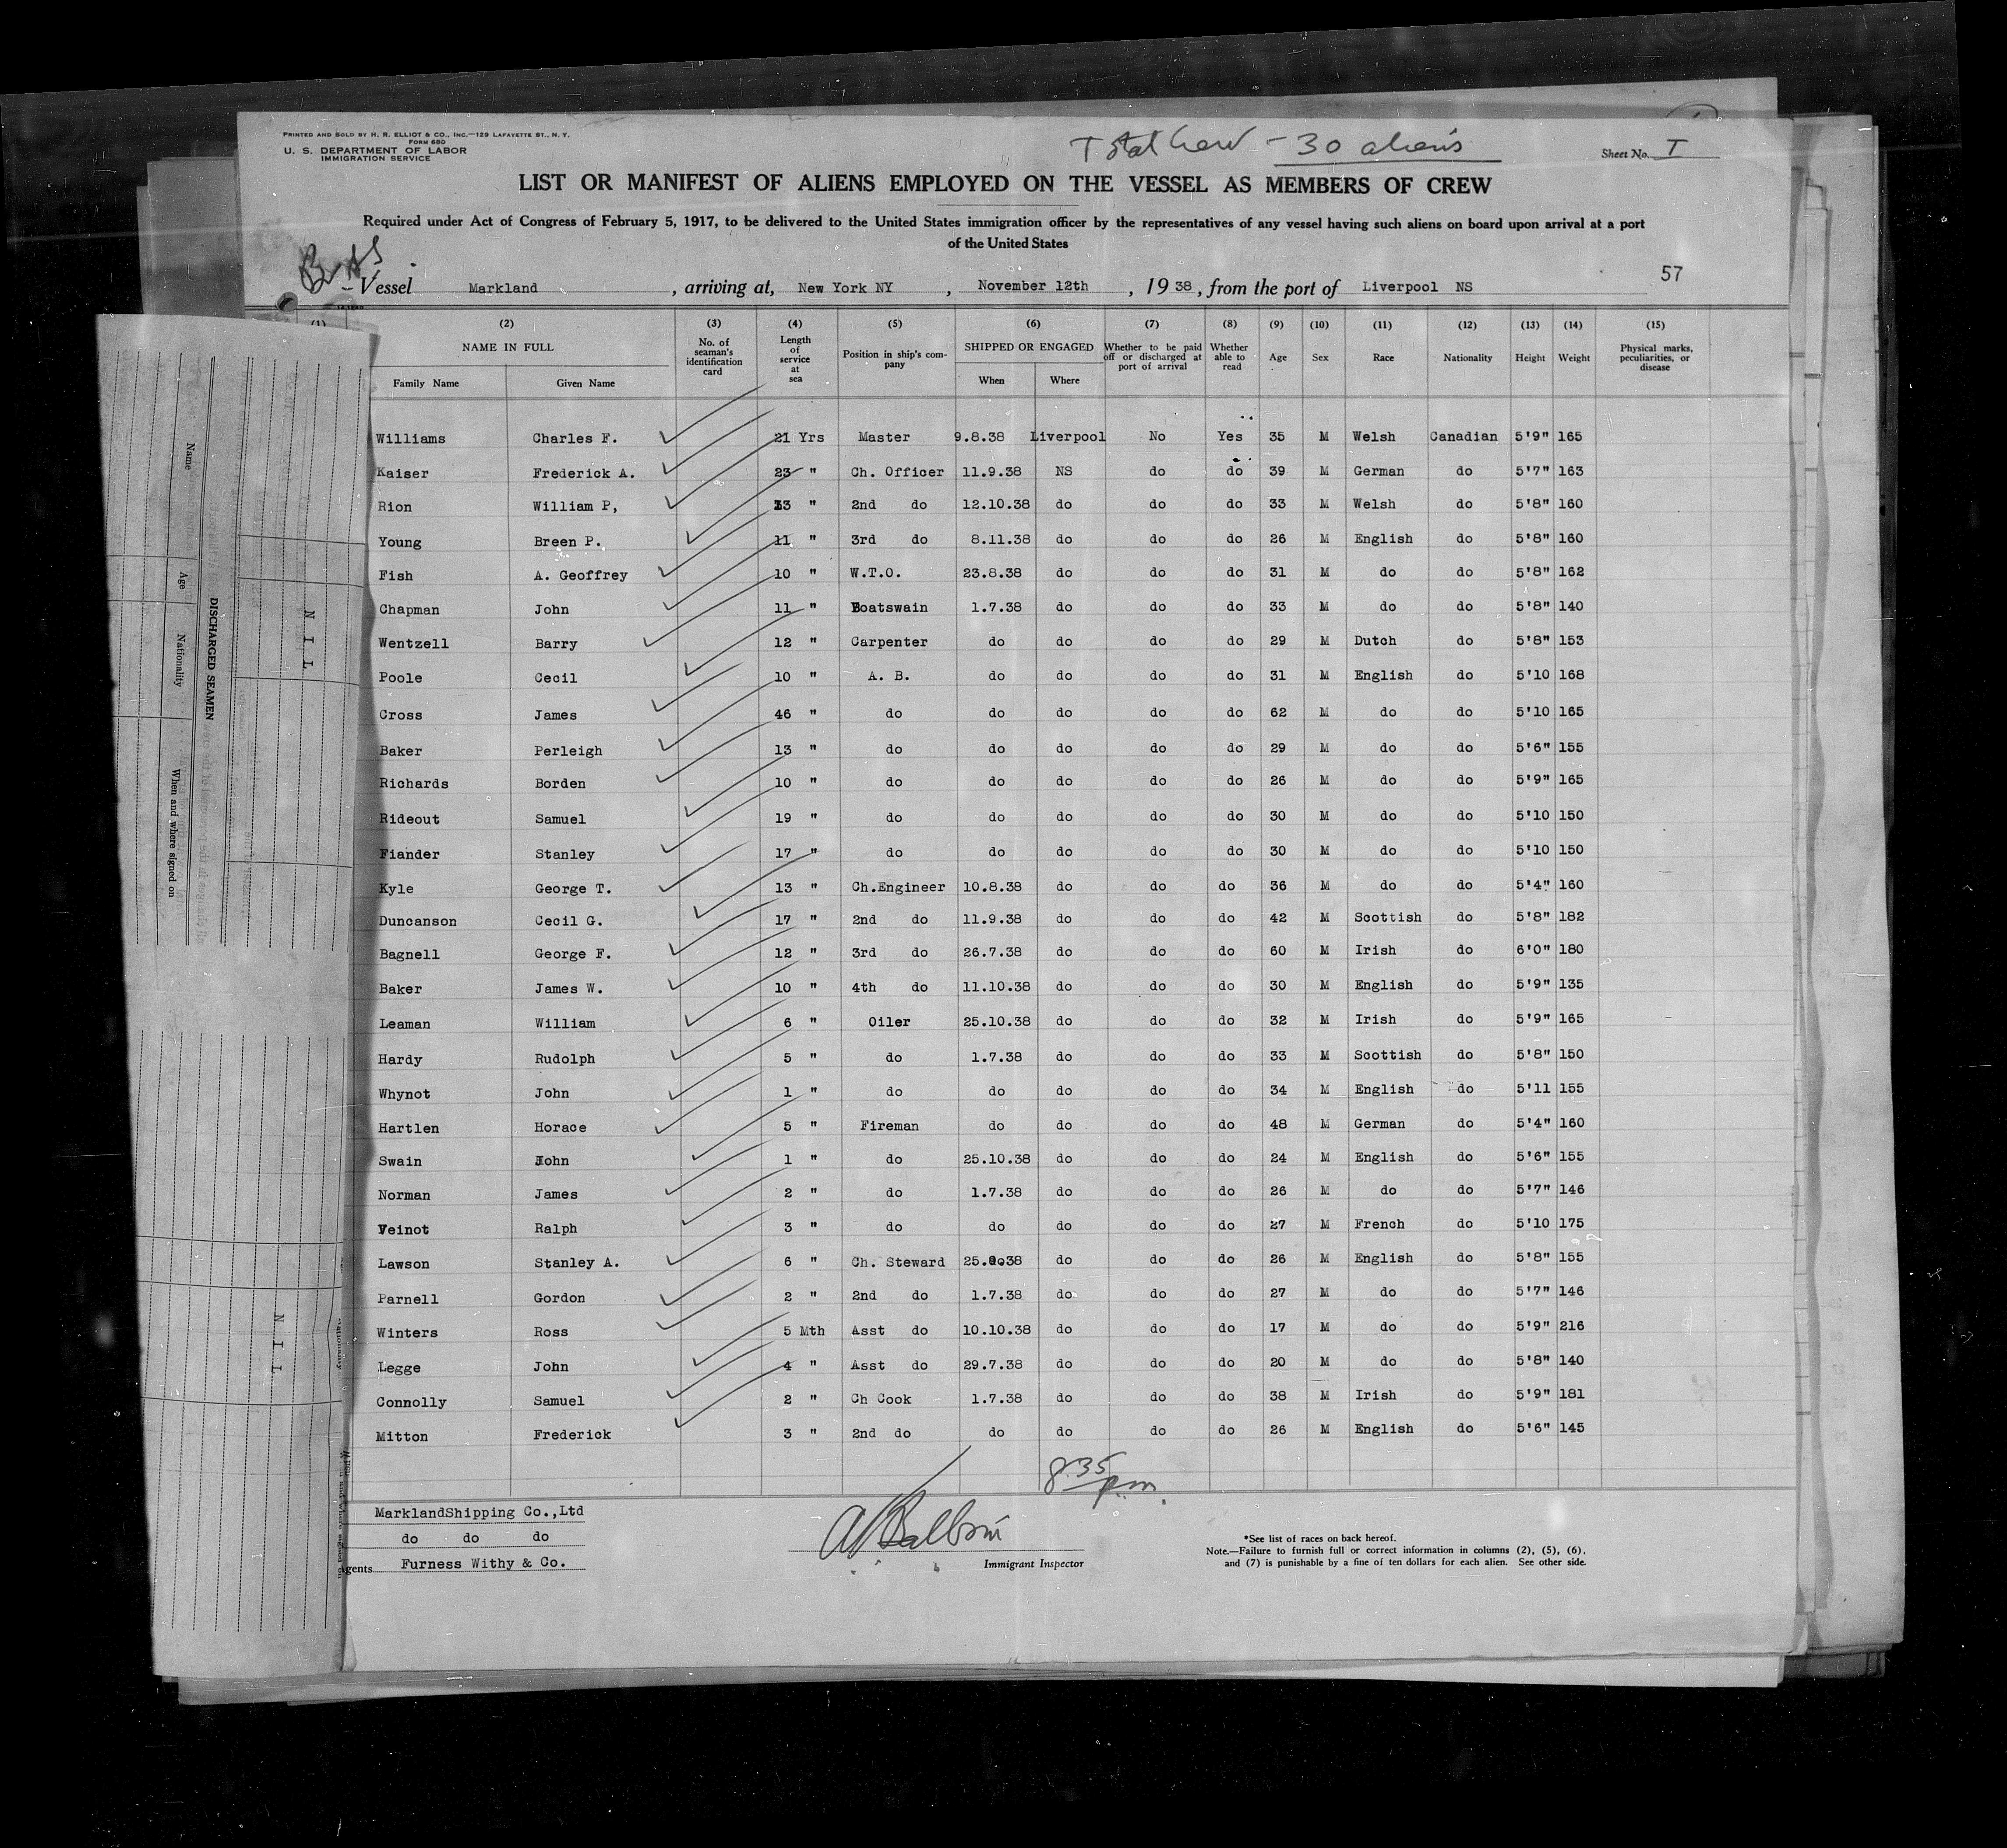 PRINTED AND SOLD BY H. R. ELLIOT & CO., INC.—129 LAFAYETTE ST., N. Y.
FORM 680
U. S. DEPARTMENT OF LABOR
IMMIGRATION SERVICE
Total Crew - 30 aliens
Sheet No. I
LIST OR MANIFEST OF ALIENS EMPLOYED ON THE VESSEL AS MEMBERS OF CREW
Required under Act of Congress of February 5, 1917, to be delivered to the United States immigration officer by the representatives of any vessel having such aliens on board upon arrival at a port
of the United States
57
Vessel Markland, arriving at, New York NY, November 12th, 19 38, from the port of Liverpool NS
(1) (2) (3) (4) (5) (6) (7) (8) (9) (10) (11) (12) (13) (14) (15)
NAME IN FULL
Family Name Given Name
No. of seaman's identification card
Length of service at sea
Position in ship's company
SHIPPED OR ENGAGED
When Where
Whether to be paid off or discharged at port of arrival
Whether able to read
Age Sex Race Nationality Height Weight
Physical marks, peculiarities, or disease
Williams Charles F. 21 Yrs Master 9.8.38 Liverpool No Yes 35 M Welsh Canadian 5'9" 165
Kaiser Frederick A. 23 " Ch. Officer 11.9.38 NS do do 39 M German do 5'7" 163
Rion William P, 13 " 2nd do 12.10.38 do do do 33 M Welsh do 5'8" 160
Young Breen P. 11 " 3rd do 8.11.38 do do do 26 M English do 5'8" 160
Fish A. Geoffrey 10 " W.T.O. 23.8.38 do do do 31 M do do 5'8" 162
Chapman John 11 " Boatswain 1.7.38 do do do 33 M do do 5'8" 140
Wentzell Barry 12 " Carpenter do do do do 29 M Dutch do 5'8" 153
Poole Cecil 10 " A. B. do do do do 31 M English do 5'10 168
Cross James 46 " do do do do do 62 M do do 5'10 165
Baker Perleigh 13 " do do do do do 29 M do do 5'6" 155
Richards Borden 10 " do do do do do 26 M do do 5'9" 165
Rideout Samuel 19 " do do do do do 30 M do do 5'10 150
Fiander Stanley 17 " do do do do do 30 M do do 5'10 150
Kyle George T. 13 " Ch.Engineer 10.8.38 do do do 36 M do do 5'4" 160
Duncanson Cecil G. 17 " 2nd do 11.9.38 do do do 42 M Scottish do 5'8" 182
Bagnell George F. 12 " 3rd do 26.7.38 do do do 60 M Irish do 6'0" 180
Baker James W. 10 " 4th do 11.10.38 do do do 30 M English do 5'9" 135
Leaman William 6 " Oiler 25.10.38 do do do 32 M Irish do 5'9" 165
Hardy Rudolph 5 " do 1.7.38 do do do 33 M Scottish do 5'8" 150
Whynot John 1 " do do do do do 34 M English do 5'11 155
Hartlen Horace 5 " Fireman do do do do 48 M German do 5'4" 160
Swain John 1 " do 25.10.38 do do do 24 M English do 5'6" 155
Norman James 2 " do 1.7.38 do do do 26 M do do 5'7" 146
Veinot Ralph 3 " do do do do do 27 M French do 5'10 175
Lawson Stanley A. 6 " Ch. Steward do do do 26 M English do 5'8" 155
Parnell Gordon 2 " 2nd do 1.7.38 do do do 27 M do do 5'7" 146
Winters Ross 5 Mth Asst do 10.10.38 do do do 17 M do do 5'9" 216
Legge John 4 " Asst do 29.7.38 do do do 20 M do do 5'8" 140
Connolly Samuel 2 " Ch Cook 1.7.38 do do do 38 M Irish do 5'9" 181
Mitton Frederick 3 " 2nd do do do do do 26 M English do 5'6" 145
8.35 pm
MarklandShipping Co.,Ltd
do do do
Agents Furness Withy & Co.
Immigrant Inspector
*See list of races on back hereof.
Note.—Failure to furnish full or correct information in columns (2), (5), (6),
and (7) is punishable by a fine of ten dollars for each alien. See other side.
Name
Age
Nationality
When and where signed on
DISCHARGED SEAMEN
N I L
N I L